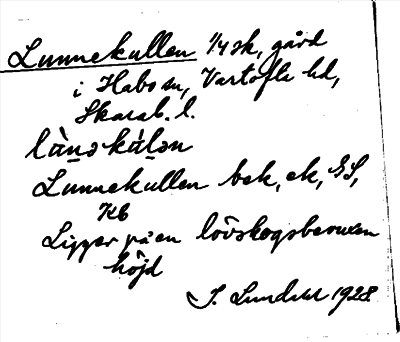 Lunnekullen 1/4 sk, gård
i Habo sn, Vartofta hd,
Skarab. l.
lùnəkúlən
Lunnekullen bek, ek, GS,
KB
Ligger på en lövskogsbevuxen
höjd
S. Lundahl 1928